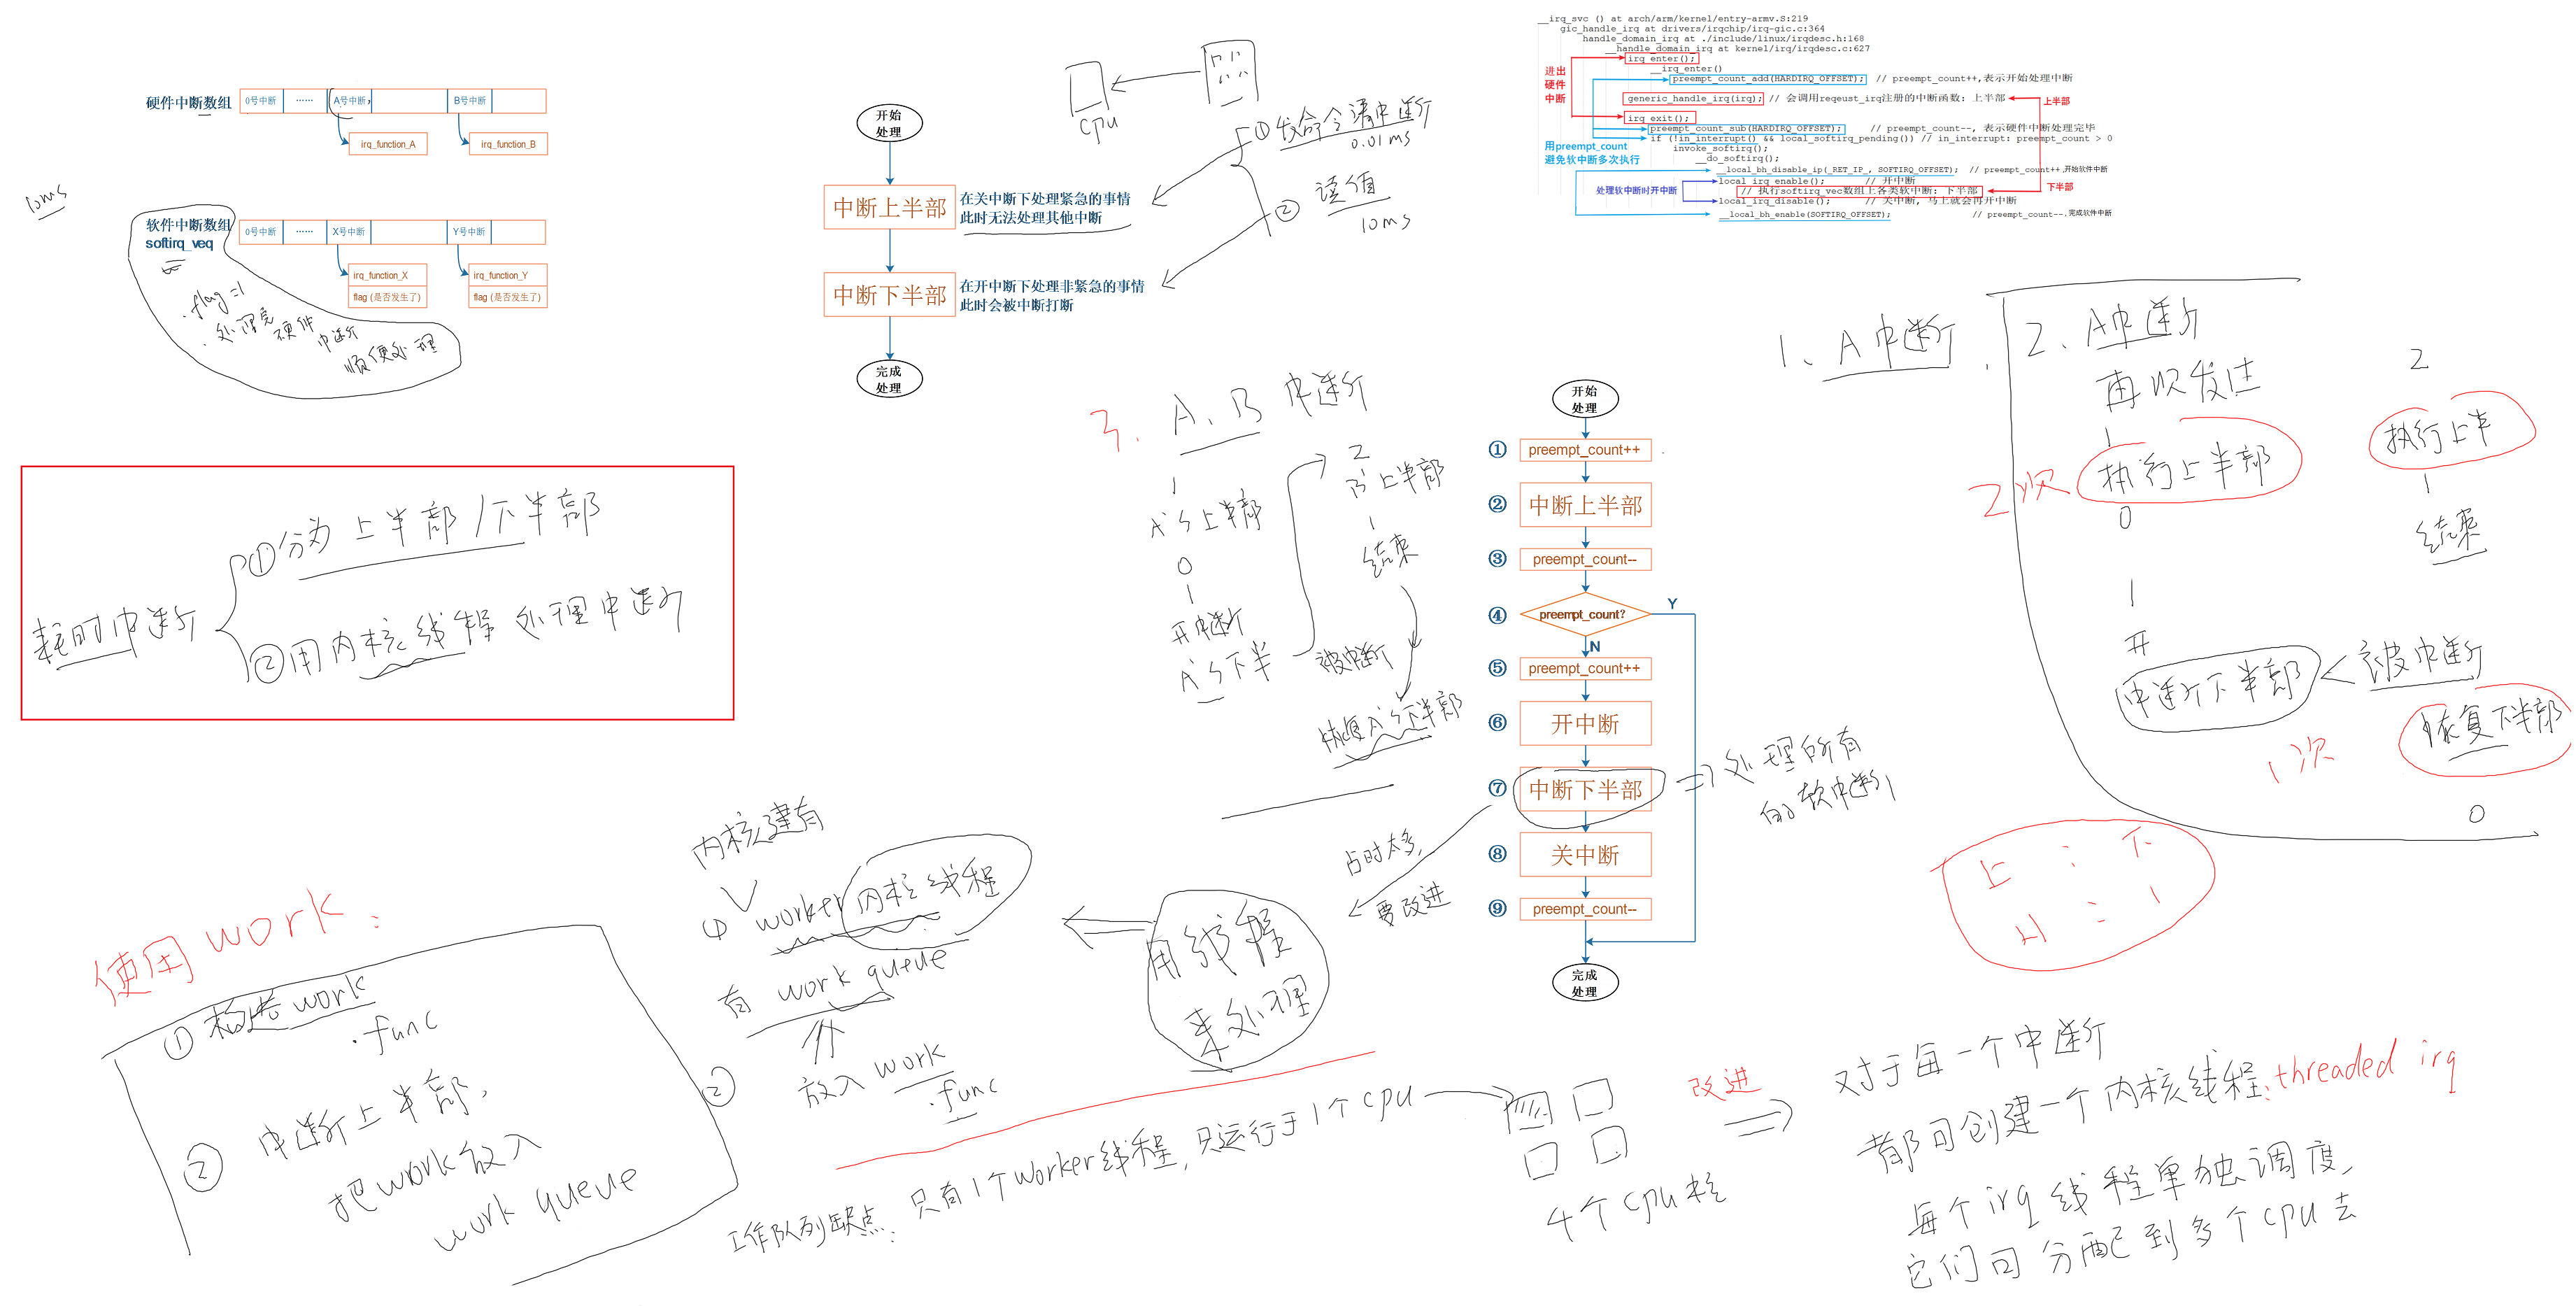 硬件中断数组
0号中断 …… A号中断 B号中断
irq_function_A irq_function_B
10ms
软件中断数组
softirq_veq
0号中断 …… X号中断 Y号中断
irq_function_X irq_function_Y
flag (是否发生了) flag (是否发生了)
.flag=1
.处理完硬件中断
顺便处理
开始
处理
中断上半部
在关中断下处理紧急的事情
此时无法处理其他中断
中断下半部
在开中断下处理非紧急的事情
此时会被中断打断
完成
处理
CPU
①发命令清中断
0.01ms
② 读值
10ms
__irq_svc () at arch/arm/kernel/entry-armv.S:219
gic_handle_irq at drivers/irqchip/irq-gic.c:364
handle_domain_irq at ./include/linux/irqdesc.h:168
__handle_domain_irq at kernel/irq/irqdesc.c:627
irq_enter();
__irq_enter()
preempt_count_add(HARDIRQ_OFFSET); // preempt_count++,表示开始处理中断
generic_handle_irq(irq); // 会调用reqeust_irq注册的中断函数: 上半部
irq_exit();
preempt_count_sub(HARDIRQ_OFFSET); // preempt_count--, 表示硬件中断处理完毕
if (!in_interrupt() && local_softirq_pending()) // in_interrupt: preempt_count > 0
invoke_softirq();
__do_softirq();
__local_bh_disable_ip(_RET_IP_, SOFTIRQ_OFFSET); // preempt_count++,开始软件中断
local_irq_enable(); // 开中断
// 执行softirq_vec数组上各类软中断: 下半部
local_irq_disable(); // 关中断, 马上就会再开中断
__local_bh_enable(SOFTIRQ_OFFSET); // preempt_count--,完成软件中断
进出
硬件
中断
上半部
用preempt_count
避免软中断多次执行
处理软中断时开中断
下半部
耗时中断
①分为上半部/下半部
②用内核线程处理中断
3、A、B 中断
1
A's上半部
0
1
开中断
A's下半
2
B's上半部
1
结束
被中断
恢复A's下半部
开始
处理
① preempt_count++
② 中断上半部
③ preempt_count--
④ preempt_count? Y
N
⑤ preempt_count++
⑥ 开中断
⑦ 中断下半部
⑧ 关中断
⑨ preempt_count--
完成
处理
=>处理所有
的软中断
占时太多,
要改进
1、A中断
2、A中断
再次发生
1
2次 执行上半部
0
1
开
中断下半部
被中断
1次
2
执行上半
1
结束
恢复下半部
0
上 : 下
n : 1
用线程
来处理
内核建有
① worker内核线程
有 work queue
② 放入 work
.func
使用work:
① 构造work
.func
② 中断上半部,
把work放入
work queue
工作队列缺点: 只有1个worker线程, 只运行于1个CPU
4个cpu核
改进
对于每一个中断
都可创建一个内核线程:threaded irq
每个irq线程单独调度,
它们可分配到多个cpu去